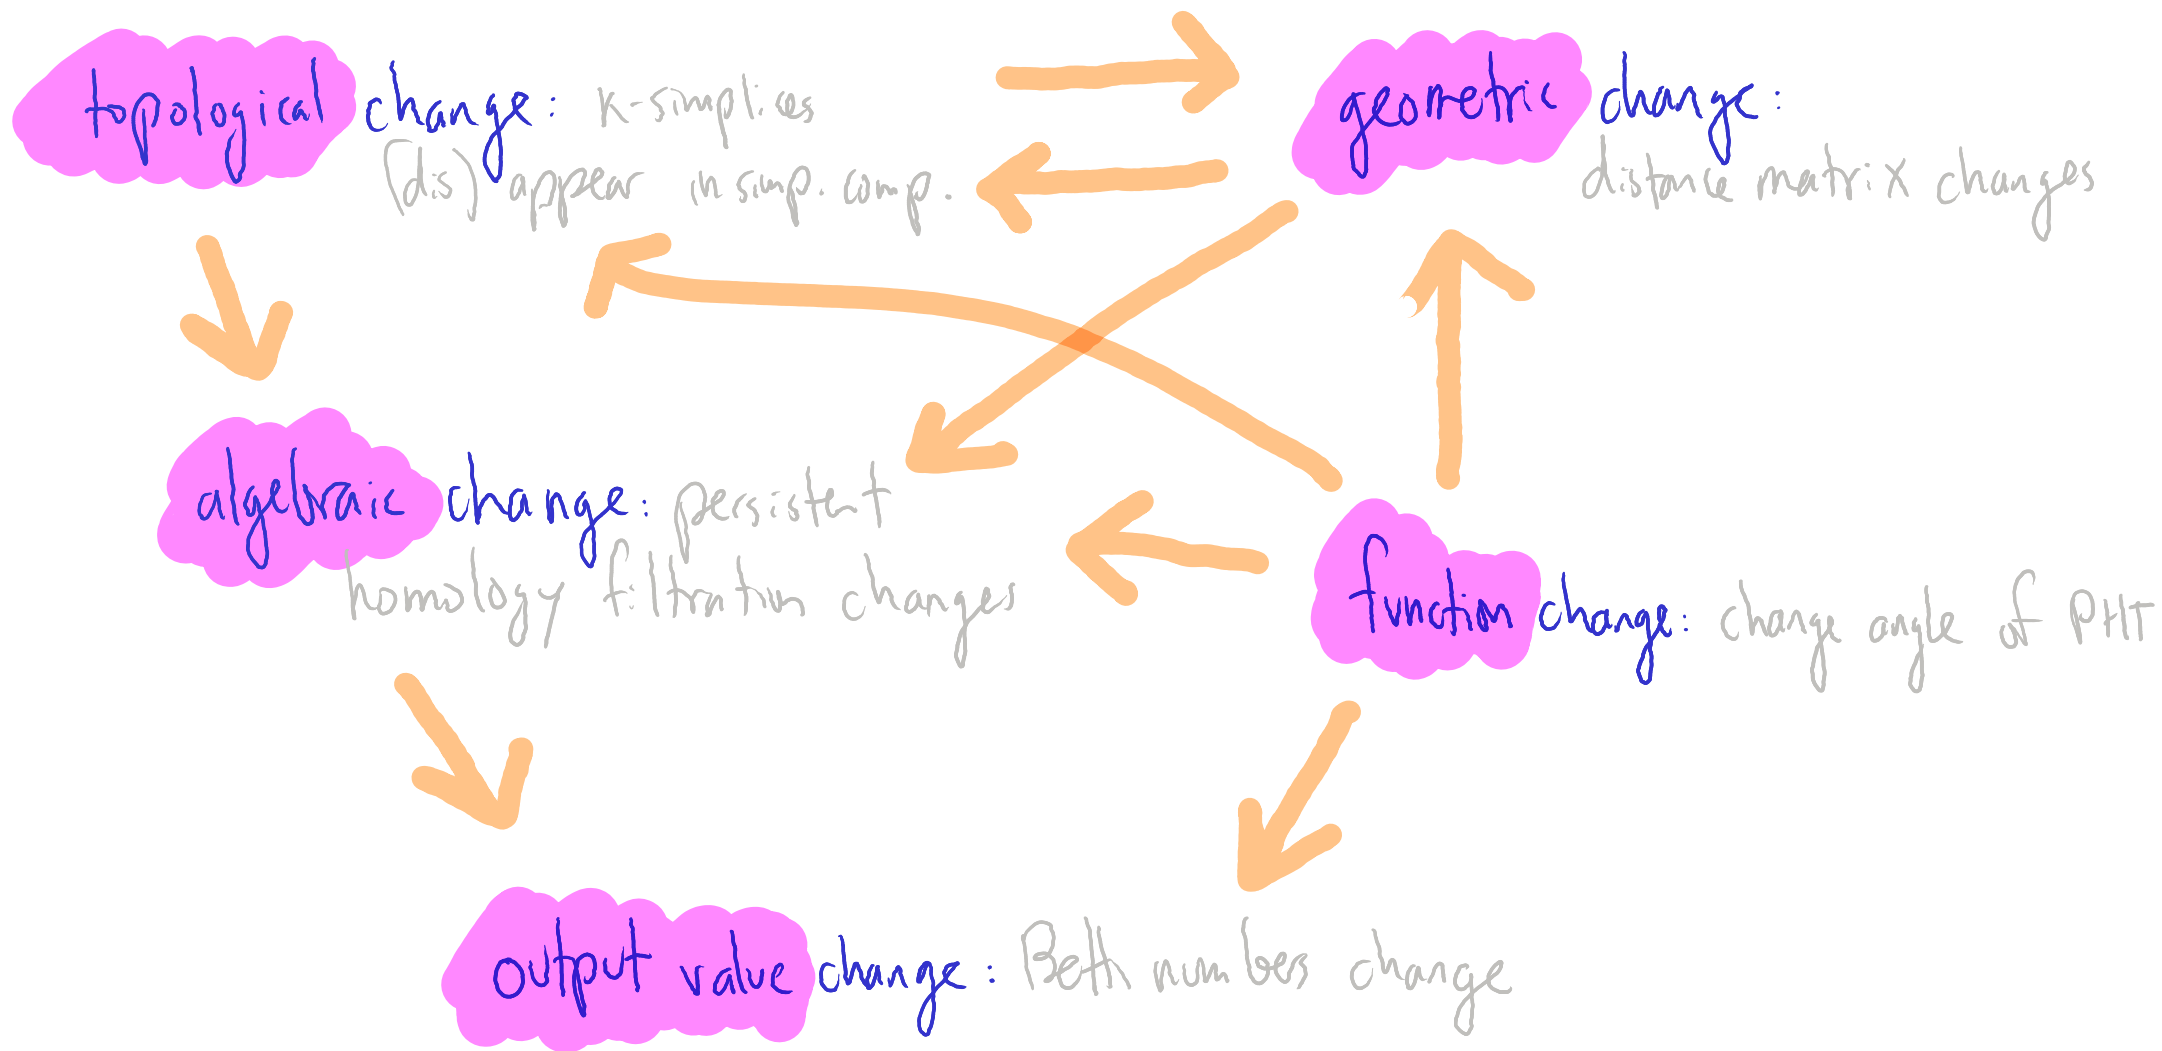 topological change: k-simplices
(dis) appear in simp. comp.
geometric change:
distance matrix changes
algebraic change: persistent
homology filtration changes
function change: change angle of PHT
output value change: Betti numbers change